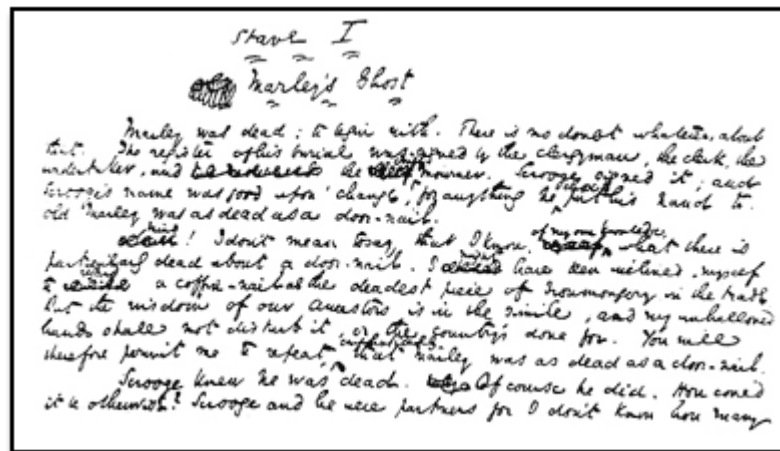 Stave I
Marley's Ghost
Marley was dead: to begin with. There is no doubt whatever, about
that. The register of his burial was signed by the clergyman, the clerk, the
undertaker, and the chief mourner. Scrooge signed it; and
Scrooge's name was good upon 'Change, for anything he put his hand to.
Old Marley was as dead as a door-nail.
Mind! I don't mean to say, that I know, of my own knowledge, what there is
particularly dead about a door-nail. I might have been inclined, myself
to regard a coffin-nail as the deadest piece of Ironmongery in the trade.
But the wisdom of our Ancestors is in the simile, and my unhallowed
hands shall not disturb it, or the Country's done for. You will
therefore permit me to repeat, emphatically, that Marley was as dead as a door-nail.
Scrooge knew he was dead. Of course he did. How could
it be otherwise? Scrooge and he were partners for I don't know how many